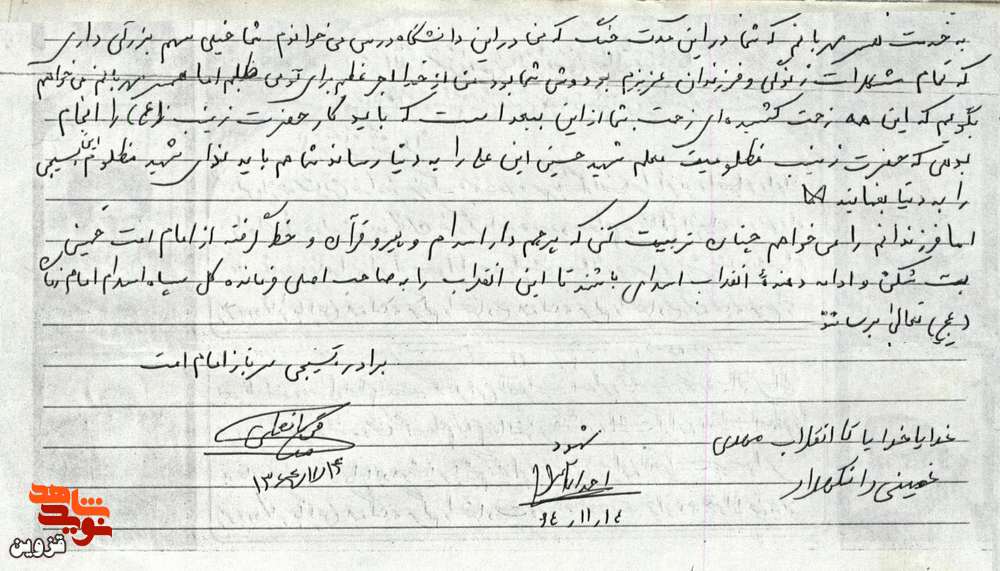 به خدمت همسر مهربانم که شما در این مدت جنگ که من در این دانشگاه درس می خوانم شما خیلی سهم بزرگی داری
که تمام مشکلات زندگی و فرزندان عزیزم بر دوش شما بود من از خدا اجر عظیم برای تو می طلبم اما همسر مهربانم می خواهم
بگویم که این همه زحمت کشیده ای زحمت شما از این ببعد است که باید کار حضرت زینب (ع) را انجام
بدهی که حضرت زینب مظلومیت معلم شهید حسین ابن علی را به دنیا رساند شما هم باید ندای شهید مظلوم بسیجی
را به دنیا بفمانید
اما فرزندانم را می خواهم چنان تربیت کنی که پرچم دار اسلام و پیرو قرآن و خط گرفته از امام امت خمینی
بت شکن و ادامه دهندۀ انقلاب اسلامی باشند تا این انقلاب را به صاحب اصلی فرمانده کل سپاه اسلام امام زمان
(عج) تعالی برسانند
برادر بسیجی سرباز امام امت
خدایا خدایا تا انقلاب مهدی
خمینی را نگهدار
شهود
۶۴,۱۱,۱۴
۱۳۶۴/۱۱/۱۴
نوید شاهد
قزوین